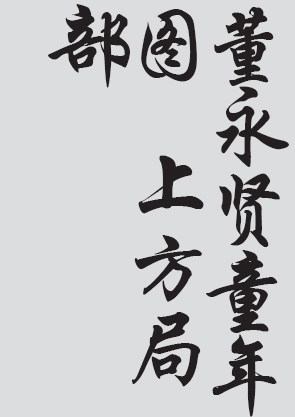 董永贤童年
图 上方局
部